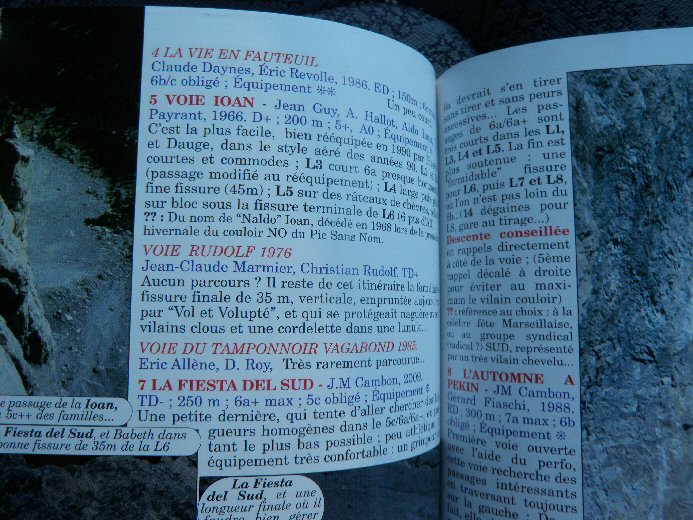 4 LA VIE EN FAUTEUIL
Claude Daynes, Éric Revolle, 1986. ED ; 150m ;
6b/c obligé ; Équipement ※※
Un peu court
5 VOIE IOAN - Jean Guy, A. Hallot, Aldo
Payrant, 1966. D+ ; 200 m ; 5+, A0 ; Équipement
C'est la plus facile, bien rééquipée en 1990 par
et Dauge, dans le style aéré des années 90,
courtes et commodes ; L3 court 6a presque
(passage modifié au rééquipement) ; L4 large puis
fine fissure (45m) ; L5 sur des râteaux de chèvres,
sur bloc sous la fissure terminale de L6 (6 pas d'A1
?? : Du nom de "Naldo" Ioan, décédé en 1968 lors de la première
hivernale du couloir NO du Pic Sans Nom.
VOIE RUDOLF 1976
Jean-Claude Marmier, Christian Rudolf. TD+
Aucun parcours ? Il reste de cet itinéraire la
fissure finale de 35 m, verticale, empruntée
par "Vol et Volupté", et qui se protégeait naguère
vilains clous et une cordelette dans une
VOIE DU TAMPONNOIR VAGABOND 1985.
Eric Allène, D. Roy, Très rarement parcourue...
7 LA FIESTA DEL SUD - J.M Cambon, 2009.
TD- ; 250 m ; 6a+ max ; 5c obligé ; Équipement ※
Une petite dernière, qui tente d'aller chercher
gueurs homogènes dans le 5c/6a/6a+
tant le plus bas possible ; peu
équipement très confortable : un
passage de la Ioan,
5c++ des familles...
Fiesta del Sud, et Babeth dans
bonne fissure de 35m de la L6
La Fiesta
del Sud, et une
longueur finale où il
faudra bien gérer
6a devrait s'en tirer
sans tirer et sans peurs
excessives... Les pas-
sages de 6a/6a+ sont
très courts dans les L1,
L3, L4 et L5. La fin est
plus soutenue : une
"formidable" fissure
pour L6, puis L7 et L8,
où l'on n'est pas loin du
6b...(14 dégaines pour
L8, gare au tirage...)
Descente conseillée
en rappels directement
à côté de la voie ; (5ème
rappel décalé à droite
pour éviter au maxi-
mum le vilain couloir)
?? : référence au choix : à la
célèbre fête Marseillaise,
ou au groupe syndical
(radical ?) SUD, représenté
par un très vilain chevelu...
8 L'AUTOMNE A
PEKIN - JM Cambon,
Gérard Fiaschi, 1988.
ED ; 300 m ; 7a max ; 6b
obligé ; Équipement ※
Première voie ouverte
avec l'aide du perfo,
cette voie recherche des
passages intéressants
en traversant toujours
sur la gauche.
fait, elle